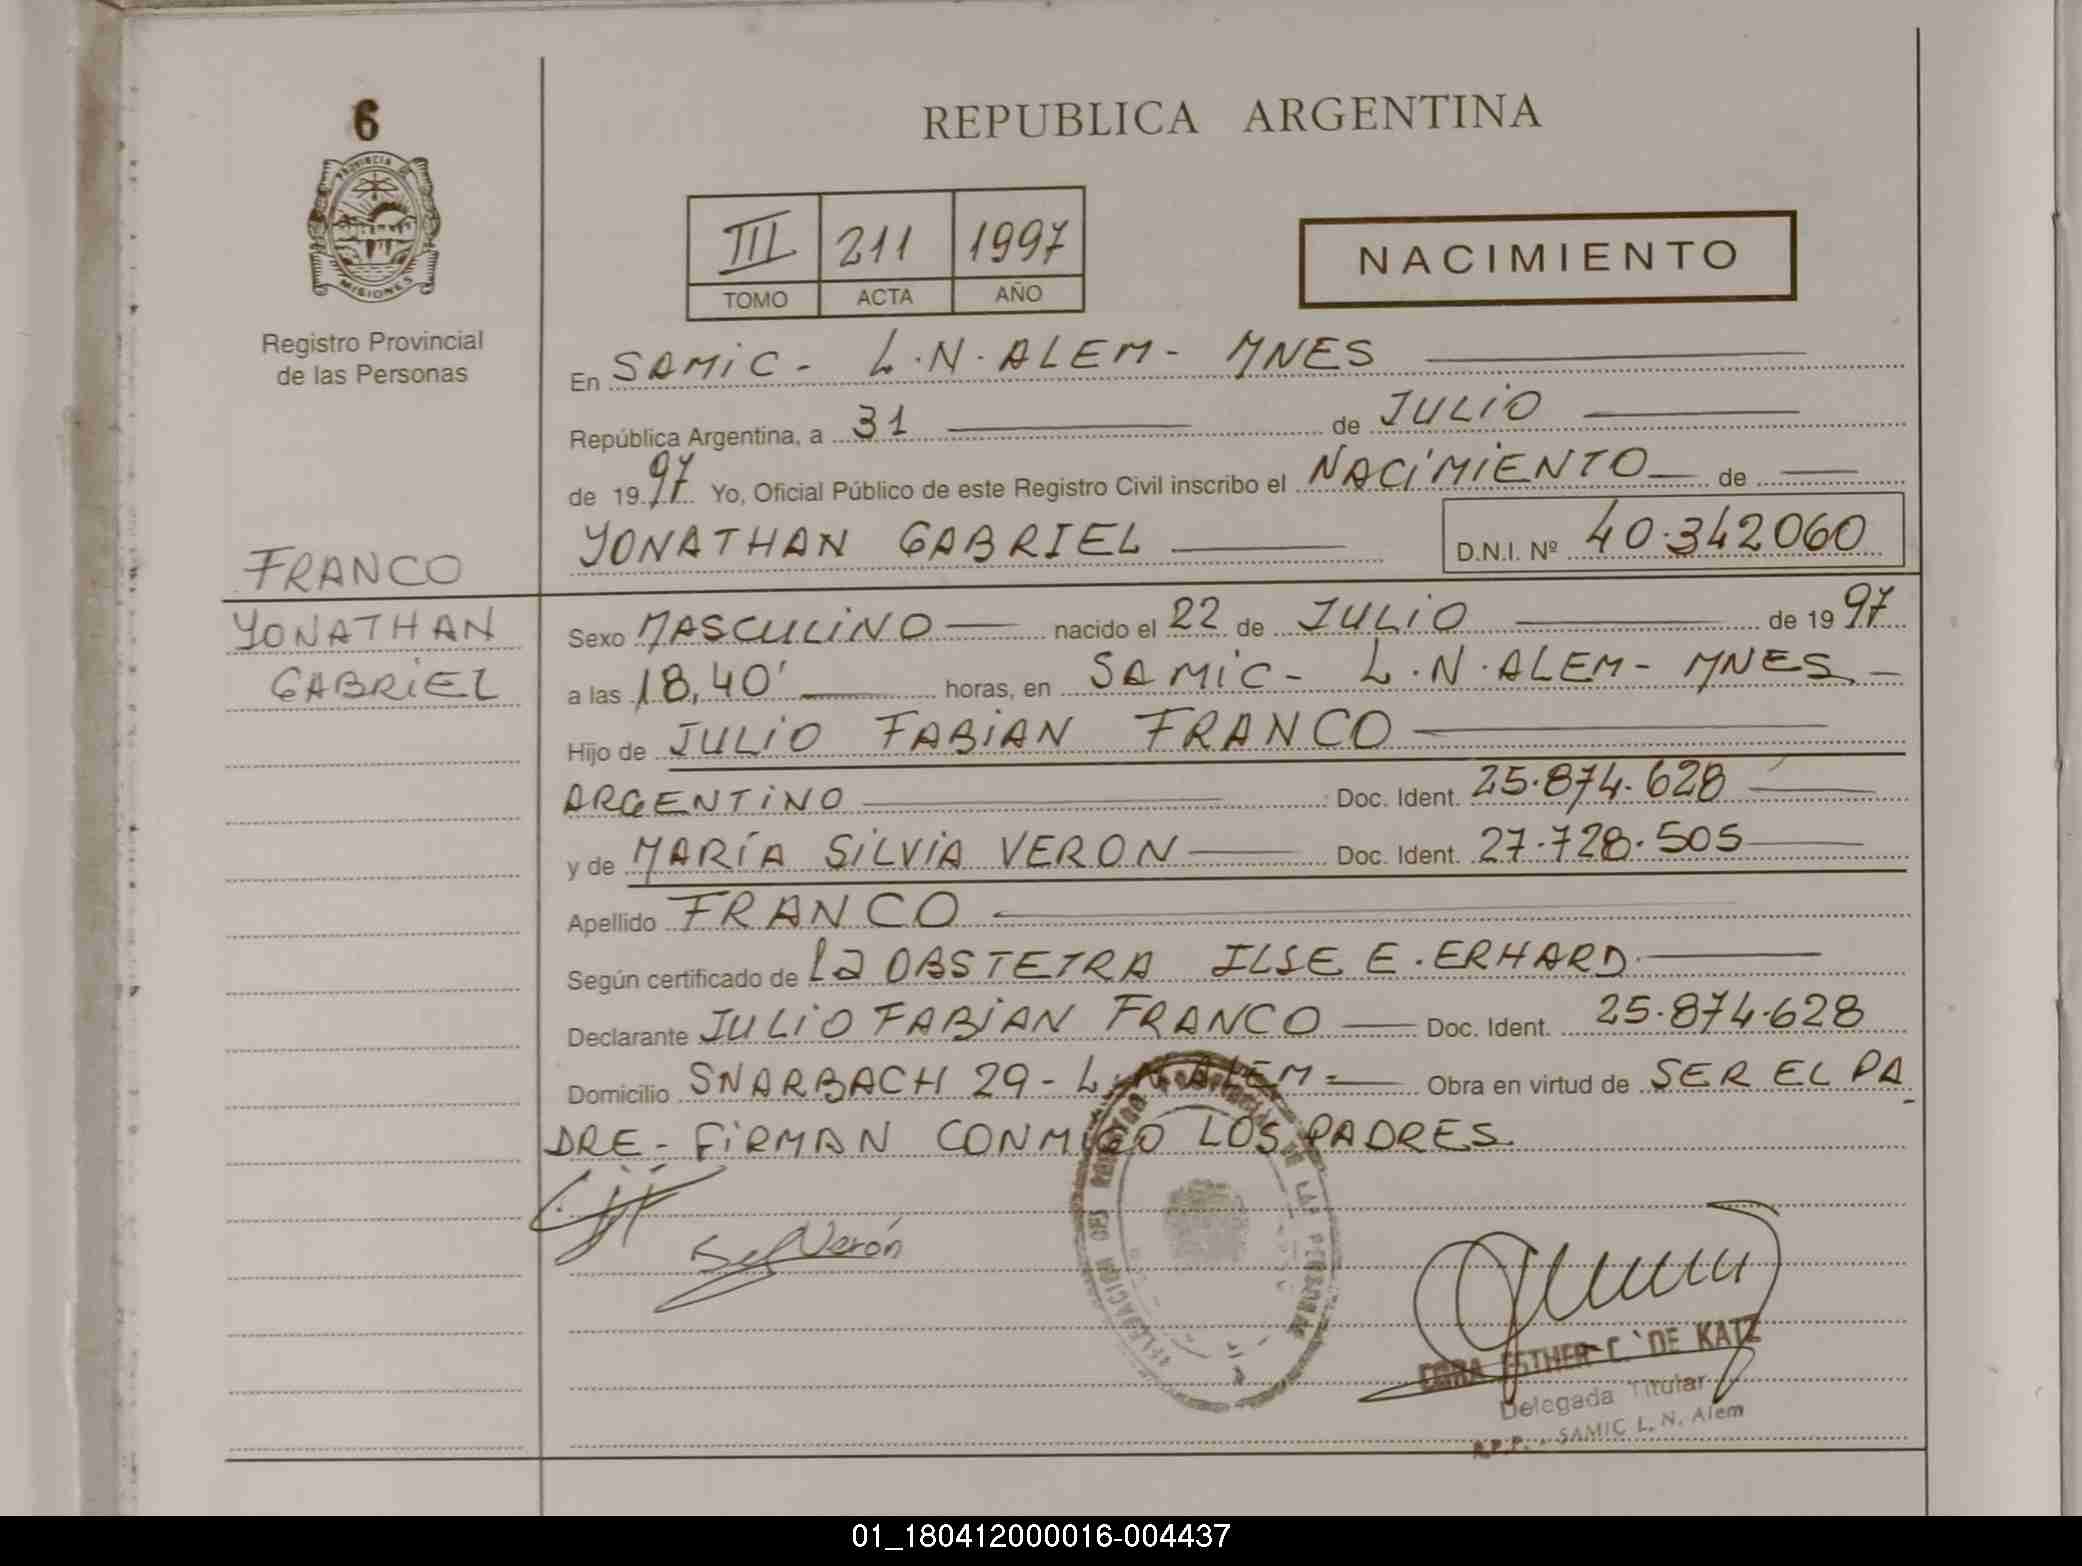 6
PROVINCIA
MISIONES
Registro Provincial
de las Personas
FRANCO
YONATHAN
GABRIEL
REPUBLICA ARGENTINA
III 211 1997
TOMO ACTA AÑO
NACIMIENTO
En SAMIC - L.N.ALEM - MNES
República Argentina, a 31 de JULIO
de 1997 Yo, Oficial Público de este Registro Civil inscribo el NACIMIENTO de
YONATHAN GABRIEL D.N.I. Nº 40.342060
Sexo MASCULINO nacido el 22 de JULIO de 1997
a las 18,40' horas, en SAMIC - L.N.ALEM - MNES
Hijo de JULIO FABIAN FRANCO
ARGENTINO Doc. Ident. 25.874.628
y de MARÍA SILVIA VERON Doc. Ident. 27.728.505
Apellido FRANCO
Según certificado de la OBSTETRA ILSE E. ERHARD
Declarante JULIO FABIAN FRANCO Doc. Ident. 25.874.628
Domicilio SNARBACH 29 - L.N.ALEM - Obra en virtud de SER EL PA
DRE - FIRMAN CONMIGO LOS PADRES.
Verón
ESTHER C. DE KATZ
Delegada Titular
SAMIC L. N. Alem
01_180412000016-004437